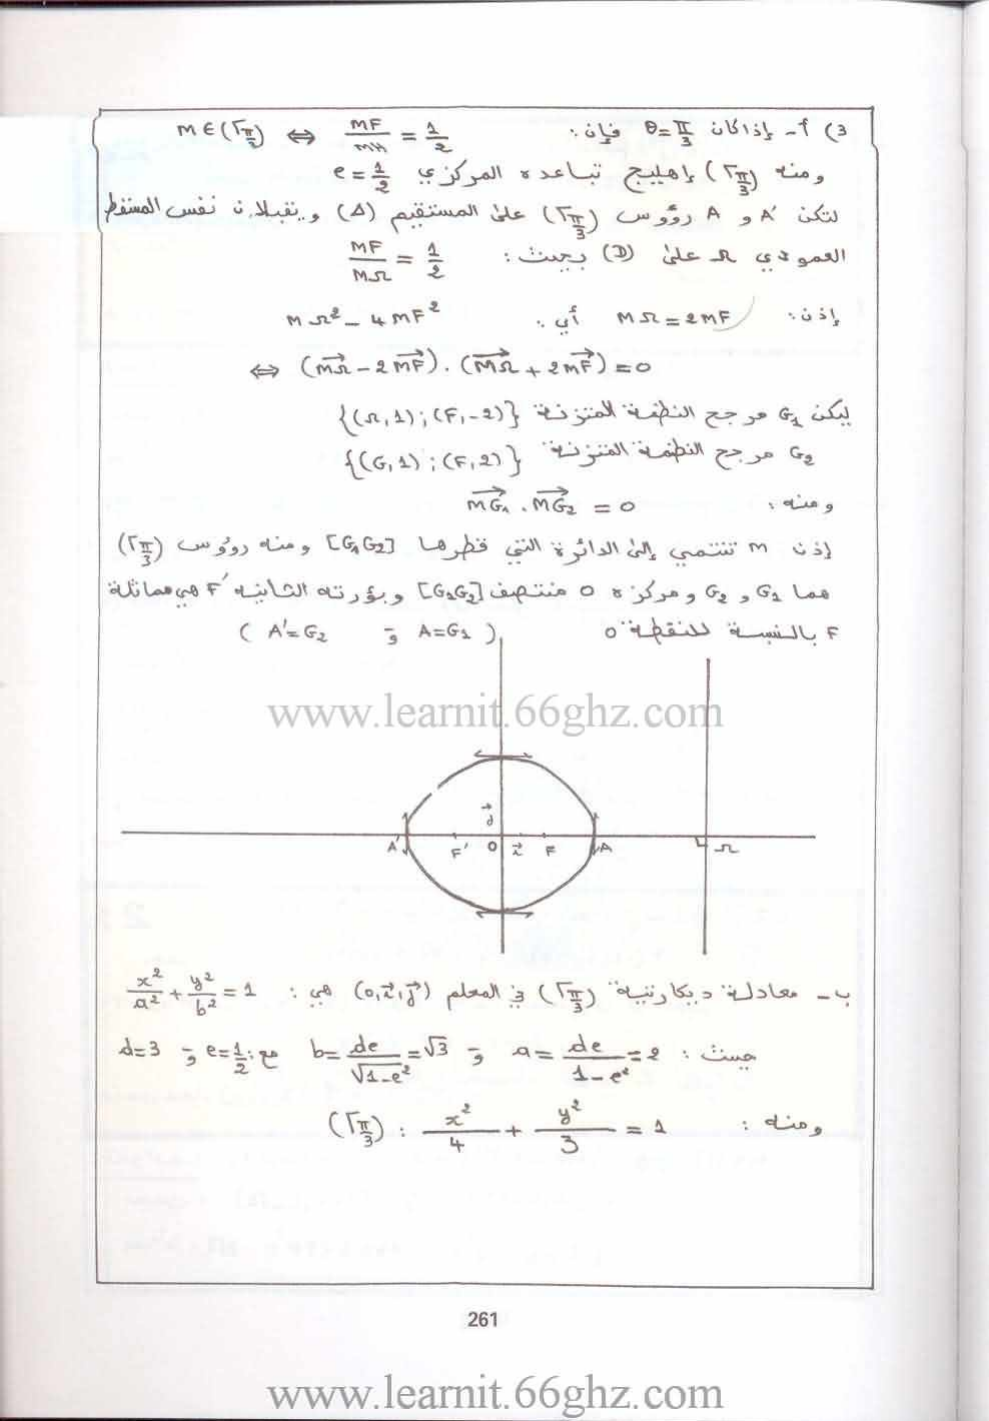 3) أ- إذا كان θ = π/3 فإن: M ∈ (Γπ/3) ⇔ MF/MH = 1/2
ومنه (Γπ/3) إهليج تباعده المركزي e = 1/2
لتكن A' و A رؤوس (Γπ/3) على المستقيم (Δ) و يقبلان نفس المسقط
العمودي Ω على (D) بحيث: MF/MΩ = 1/2
إذن: MΩ = 2MF أي: MΩ² - 4MF²
⇔ (MΩ - 2MF) . (MΩ + 2MF) = 0
ليكن G1 مرجح النظمة المتزنة {(Ω,1);(F,-2)}
G2 مرجح النظمة المتزنة {(G,1);(F,2)}
ومنه: MG1 . MG2 = 0
إذن M تنتمي إلى الدائرة التي قطرها [G1G2] ومنه رؤوس (Γπ/3)
هما G1 و G2 ومركزه O منتصف [G1G2] وبؤرته الثانية F' هي مماثلة
F بالنسبة للنقطة O (A=G1 و A'=G2)
www.learnit.66ghz.com
j
A' F' O i F A Ω
ب- معادلة ديكارتية (Γπ/3) في المعلم (O,i,j) هي: x²/a² + y²/b² = 1
حيث: a = de/1-e² = 2 و b = de/√1-e² = √3 مع: e=1/2 و d=3
ومنه: (Γπ/3): x²/4 + y²/3 = 1
261
www.learnit.66ghz.com